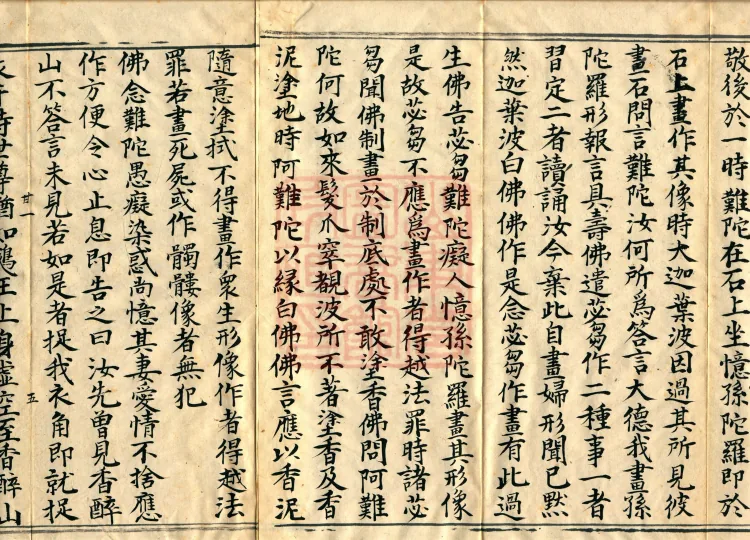 敬後於一時難陀在石上坐憶孫陀羅即於
石上畫作其像時大迦葉波因過其所見彼
畫石問言難陀汝何所為答言大德我畫孫
陀羅形報言具壽佛遣苾芻作二種事一者
習定二者讀誦汝今棄此自畫婦形聞已默
然迦葉波白佛佛作是念苾芻作畫有此過
生佛告苾芻難陀癡人憶孫陀羅畫其形像
是故苾芻不應為畫作者得越法罪時諸苾
芻聞佛制畫於制底處不敢塗香佛問阿難
陀何故如來髮爪窣覩波所不著塗香及香
泥塗地時阿難陀以緣白佛佛言應以香泥
隨意塗拭不得畫作衆生形像作者得越法
罪若畫死屍或作髑髏像者無犯
佛念難陀愚癡染惑尚憶其妻愛情不捨應
作方便令心止息即告之曰汝先曾見香醉
山不答言未見若如是者捉我衣角即就捉
衣于時世尊猶如鵝王上昇虛空至香醉山
廿一
五